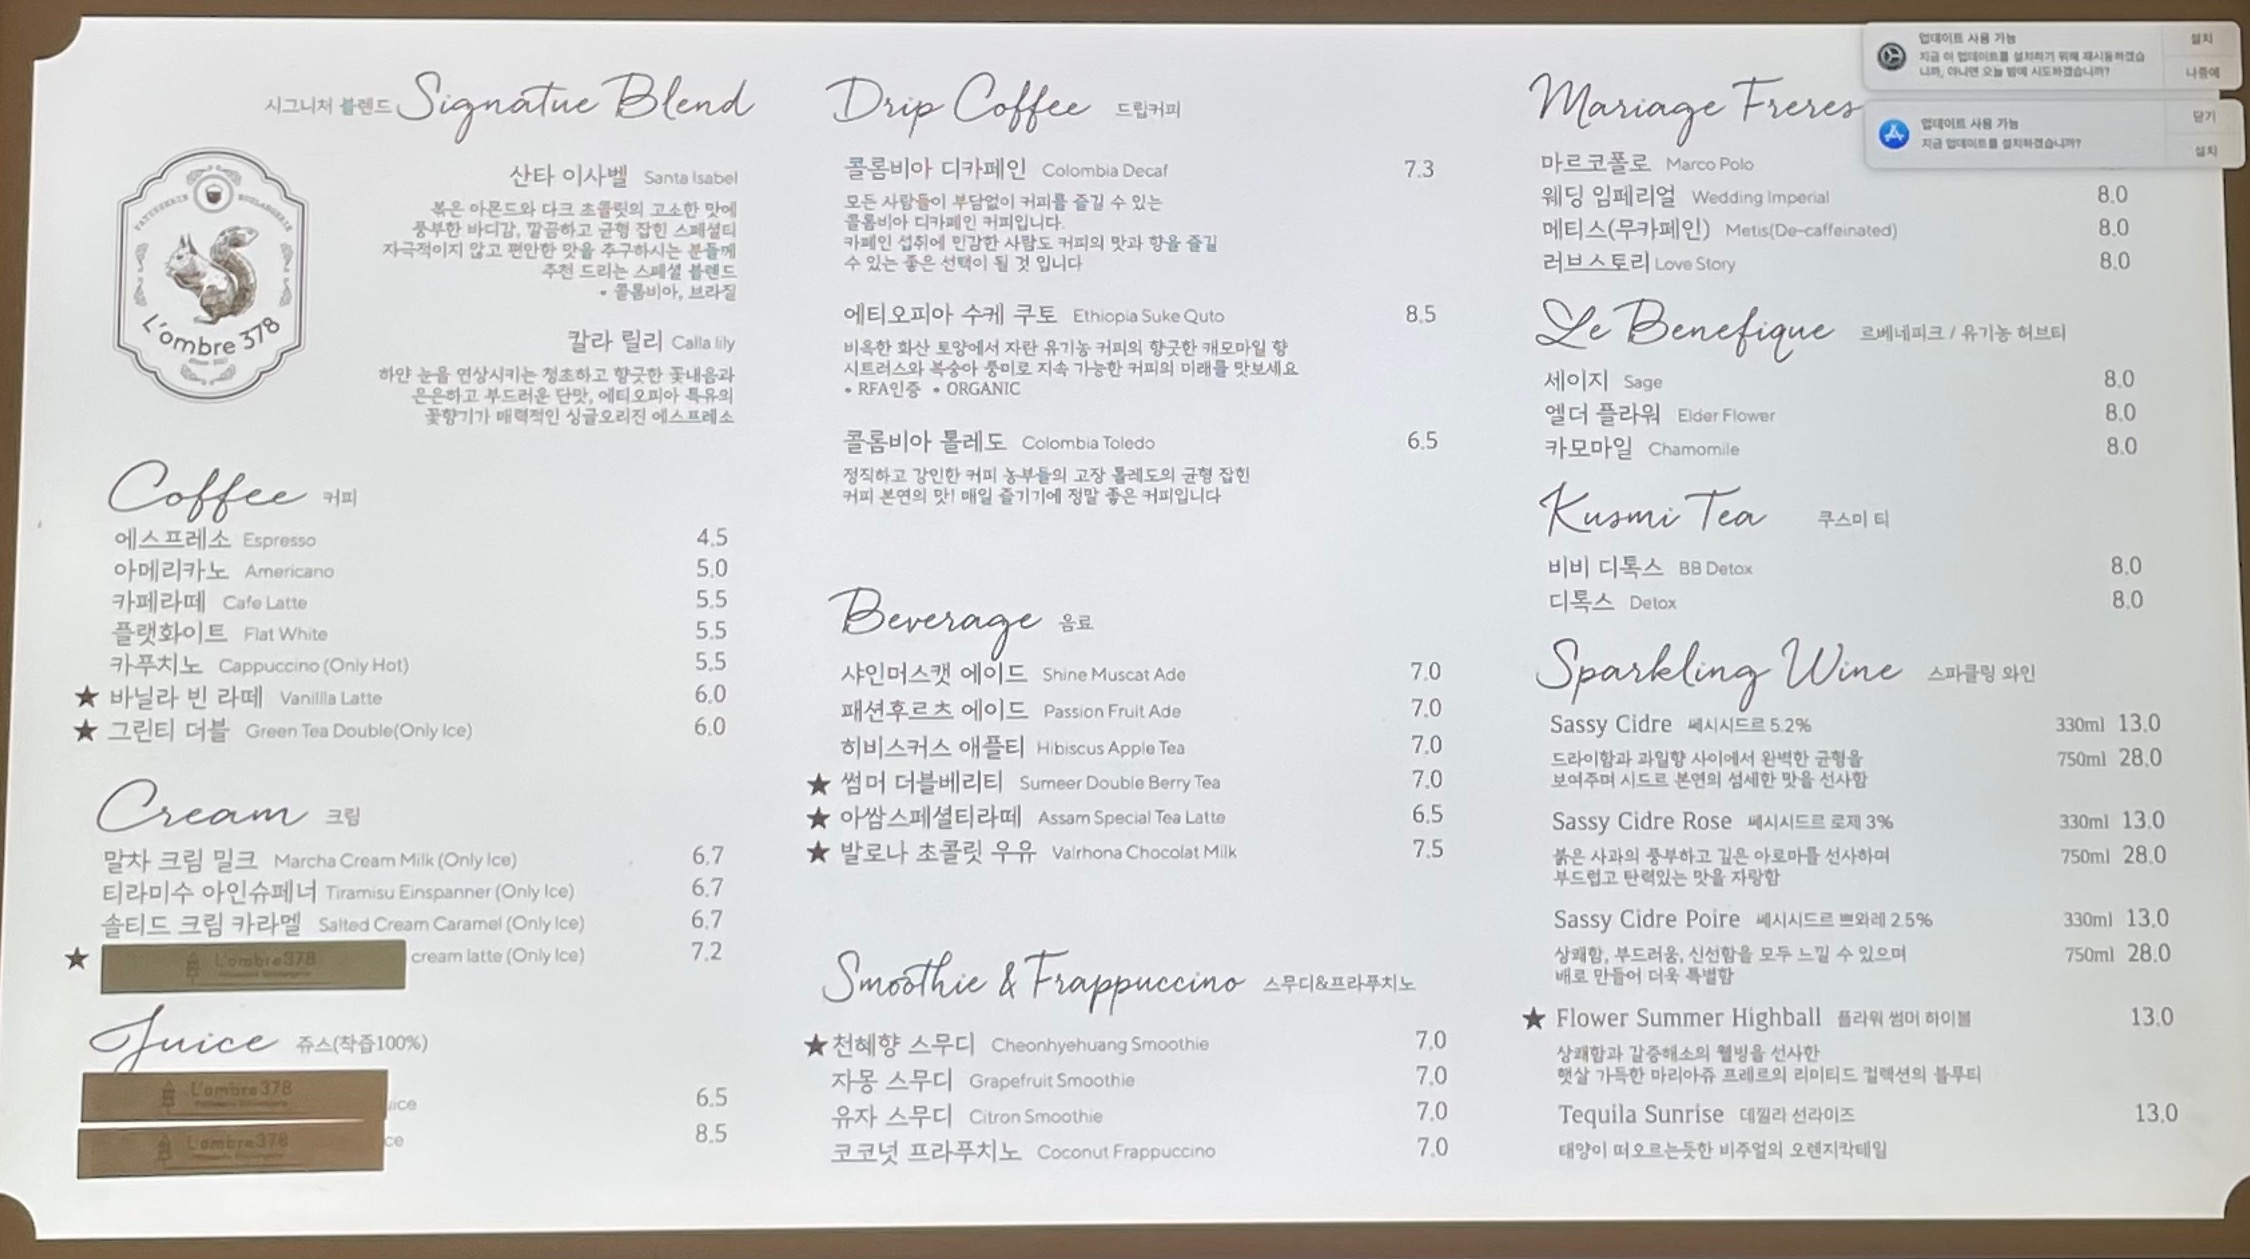 시그니처 블렌드 Signatue Blend
산타 이사벨 Santa Isabel
볶은 아몬드와 다크 초콜릿의 고소한 맛에
풍부한 바디감, 깔끔하고 균형 잡힌 스페셜티
자극적이지 않고 편안한 맛을 추구하시는 분들께
추천 드리는 스페셜 블렌드
• 콜롬비아, 브라질
칼라 릴리 Calla lily
하얀 눈을 연상시키는 청초하고 향긋한 꽃내음과
은은하고 부드러운 단맛, 에티오피아 특유의
꽃향기가 매력적인 싱글오리진 에스프레소
PATISSERIE BOULANGERIE
L'ombre 378
Coffee 커피
에스프레소 Espresso 4.5
아메리카노 Americano 5.0
카페라떼 Cafe Latte 5.5
플랫화이트 Flat White 5.5
카푸치노 Cappuccino (Only Hot) 5.5
★ 바닐라 빈 라떼 Vanillla Latte 6.0
★ 그린티 더블 Green Tea Double(Only Ice) 6.0
Cream 크림
말차 크림 밀크 Marcha Cream Milk (Only Ice) 6.7
티라미수 아인슈페너 Tiramisu Einspanner (Only Ice) 6.7
솔티드 크림 카라멜 Salted Cream Caramel (Only Ice) 6.7
★ L'ombre378 cream latte (Only Ice) 7.2
Juice 쥬스(착즙100%)
L'ombre378 uice 6.5
L'ombre378 ce 8.5
Drip Coffee 드립커피
콜롬비아 디카페인 Colombia Decaf 7.3
모든 사람들이 부담없이 커피를 즐길 수 있는
콜롬비아 디카페인 커피입니다.
카페인 섭취에 민감한 사람도 커피의 맛과 향을 즐길
수 있는 좋은 선택이 될 것 입니다
에티오피아 수케 쿠토 Ethiopia Suke Quto 8.5
비옥한 화산 토양에서 자란 유기농 커피의 향긋한 캐모마일 향
시트러스와 복숭아 풍미로 지속 가능한 커피의 미래를 맛보세요
• RFA인증 • ORGANIC
콜롬비아 톨레도 Colombia Toledo 6.5
정직하고 강인한 커피 농부들의 고장 톨레도의 균형 잡힌
커피 본연의 맛! 매일 즐기기에 정말 좋은 커피입니다
Beverage 음료
샤인머스캣 에이드 Shine Muscat Ade 7.0
패션후르츠 에이드 Passion Fruit Ade 7.0
히비스커스 애플티 Hibiscus Apple Tea 7.0
★ 썸머 더블베리티 Sumeer Double Berry Tea 7.0
★ 아쌈스페셜티라떼 Assam Special Tea Latte 6.5
★ 발로나 초콜릿 우유 Valrhona Chocolat Milk 7.5
Smoothie & Frappuccino 스무디&프라푸치노
★ 천혜향 스무디 Cheonhyehuang Smoothie 7.0
자몽 스무디 Grapefruit Smoothie 7.0
유자 스무디 Citron Smoothie 7.0
코코넛 프라푸치노 Coconut Frappuccino 7.0
Mariage Freres
마르코폴로 Marco Polo
웨딩 임페리얼 Wedding Imperial 8.0
메티스(무카페인) Metis(De-caffeinated) 8.0
러브스토리 Love Story 8.0
Le Benefique 르베네피크 / 유기농 허브티
세이지 Sage 8.0
엘더 플라워 Elder Flower 8.0
카모마일 Chamomile 8.0
Kusmi Tea 쿠스미 티
비비 디톡스 BB Detox 8.0
디톡스 Detox 8.0
Sparkling Wine 스파클링 와인
Sassy Cidre 쎄시시드르 5.2% 330ml 13.0
750ml 28.0
드라이함과 과일향 사이에서 완벽한 균형을
보여주며 시드르 본연의 섬세한 맛을 선사함
Sassy Cidre Rose 쎄시시드르 로제 3% 330ml 13.0
750ml 28.0
붉은 사과의 풍부하고 깊은 아로마를 선사하며
부드럽고 탄력있는 맛을 자랑함
Sassy Cidre Poire 쎄시시드르 쁘와레 2.5% 330ml 13.0
750ml 28.0
상쾌함, 부드러움, 신선함을 모두 느낄 수 있으며
배로 만들어 더욱 특별함
★ Flower Summer Highball 플라워 썸머 하이볼 13.0
상쾌함과 갈증해소의 웰빙을 선사한
햇살 가득한 마리아쥬 프레르의 리미티드 컬렉션의 블루티
Tequila Sunrise 데낄라 선라이즈 13.0
태양이 떠오르는듯한 비주얼의 오렌지칵테일
업데이트 사용 가능
지금 이 업데이트를 설치하기 위해 재시동하겠습
니까, 아니면 오늘 밤에 시도하겠습니까?
설치
나중에
업데이트 사용 가능
지금 업데이트를 설치하겠습니까?
닫기
설치